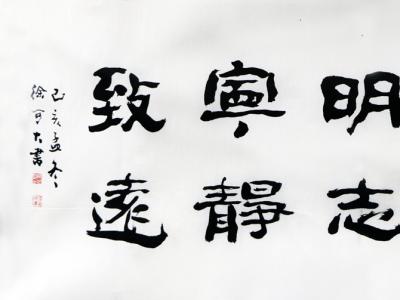 明志
寧靜
致遠
己亥孟冬
徐可大書